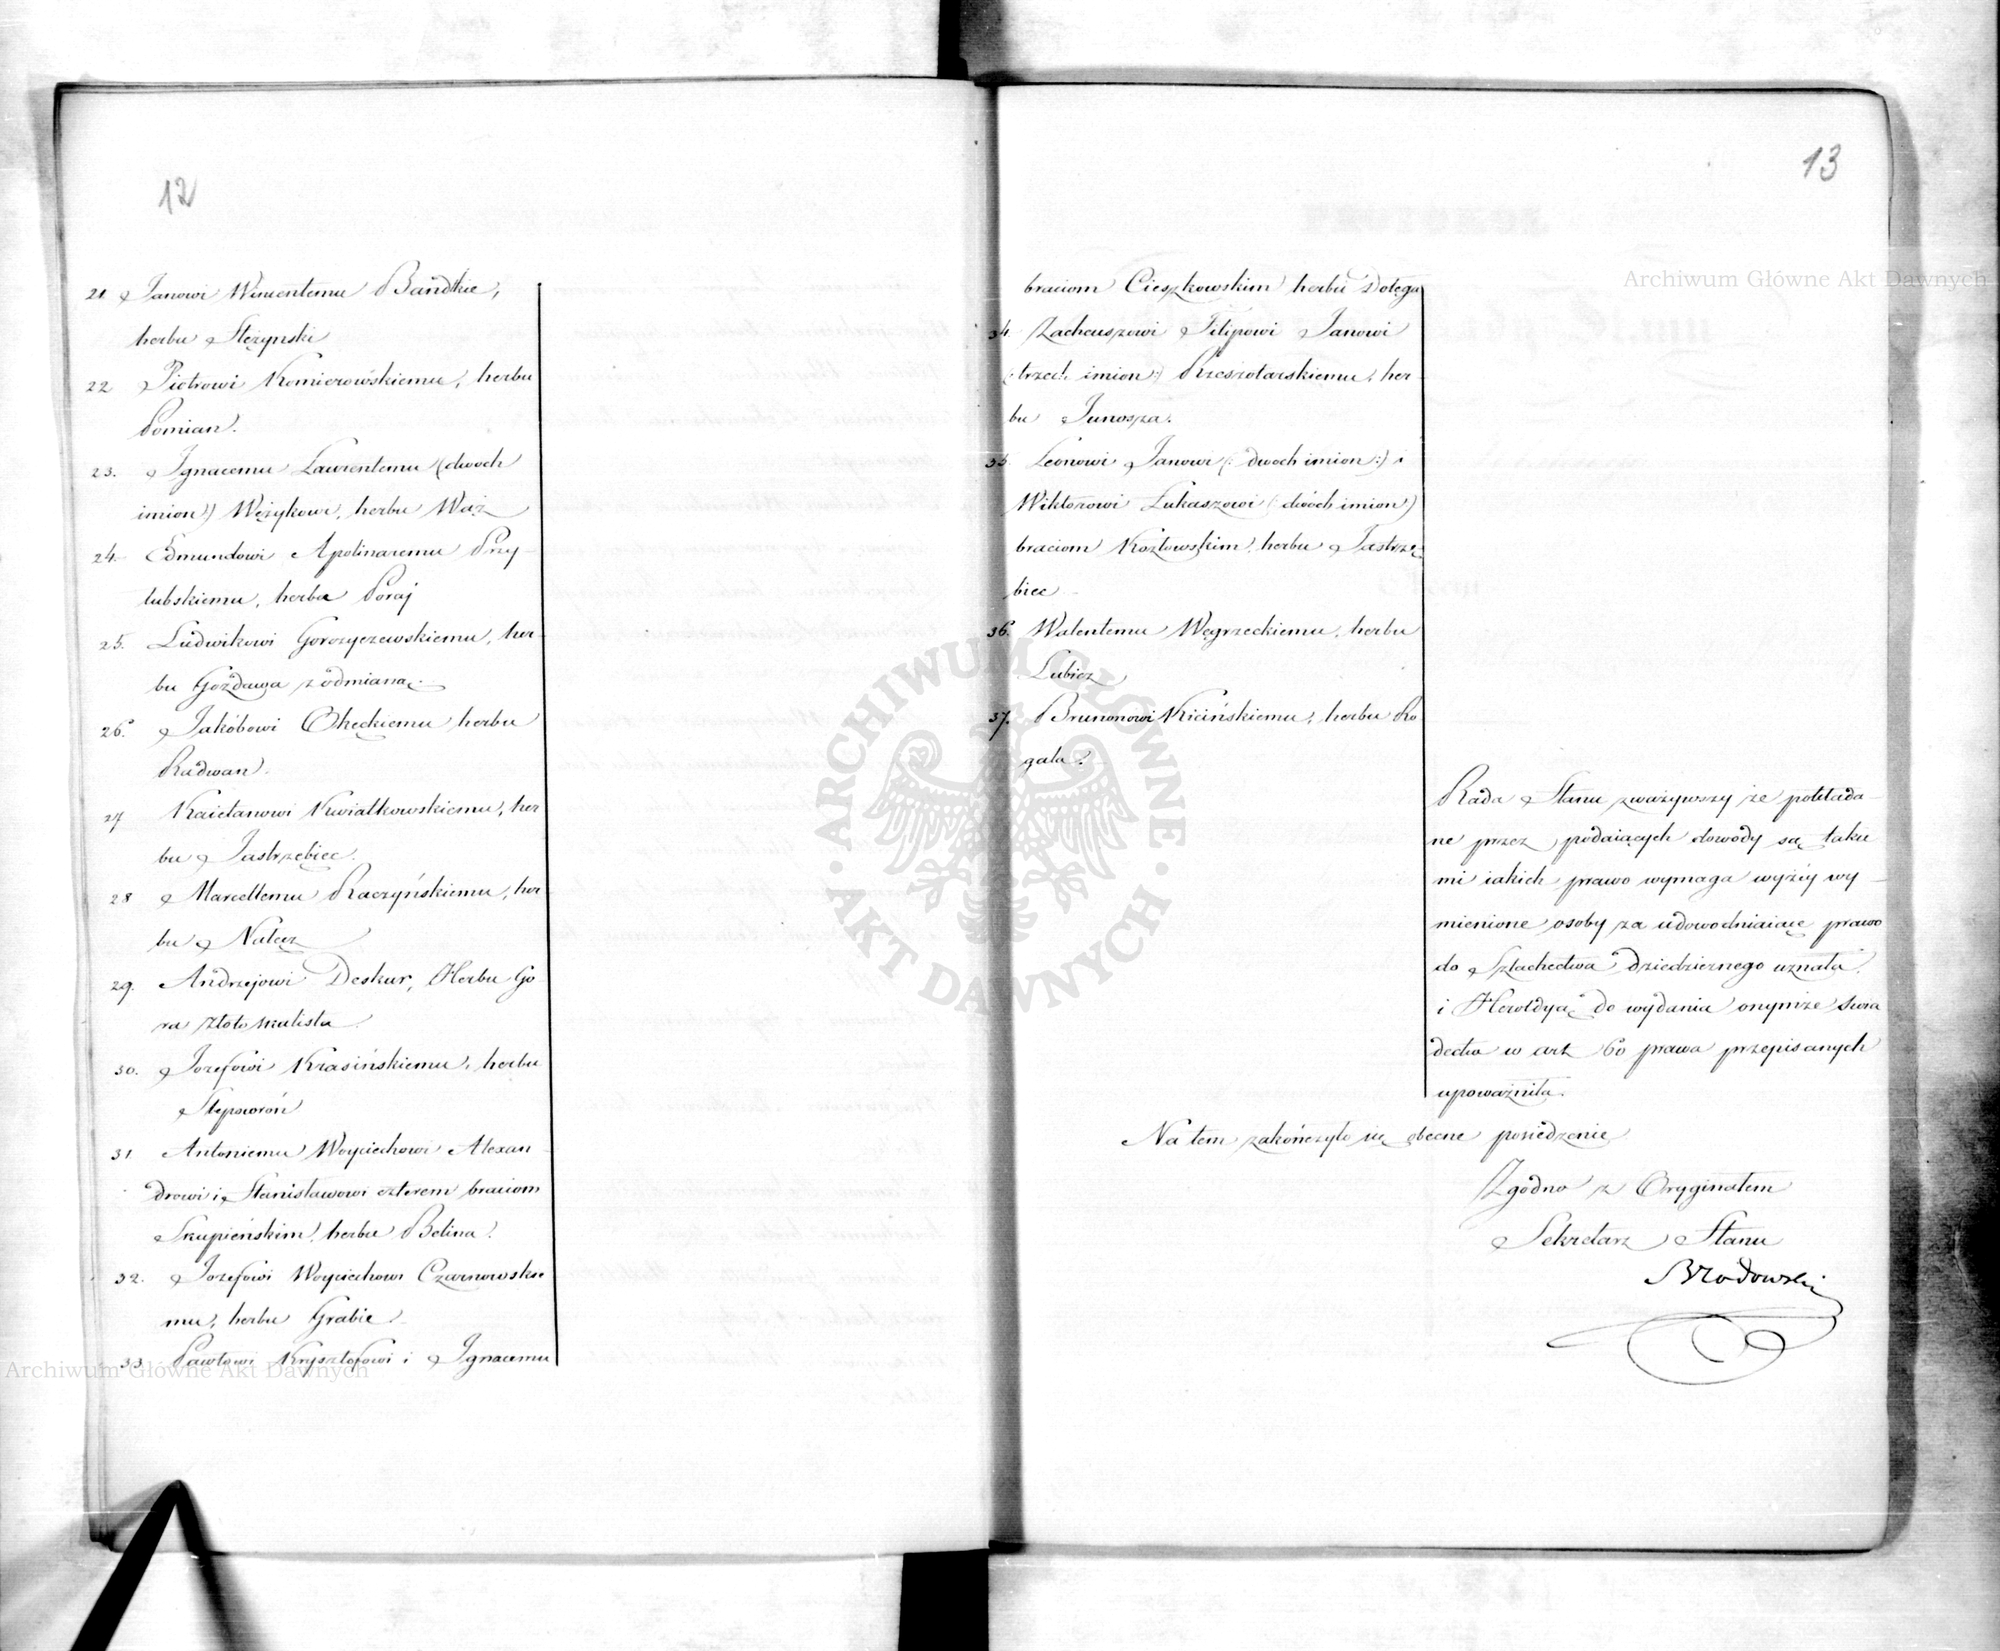 12
21 Janowi Wincentemu Bandtkie,
herbu Stężynski
22 Piotrowi Komierowskiemu, herbu
Pomian.
23. Ignacemu Laurentemu (dwoch
imion) Wężykowi, herbu Wąż
24. Edmundowi Apolinaremu Przy-
łubskiemu, herbu Poraj
25. Ludwikowi Gorczyczewskiemu, her-
bu Gozdawa z odmianą.
26. Jakóbowi Okęckiemu herbu
Radwan.
27 Kaietanowi Kwiatkowskiemu, her
bu Jastrzębiec.
28 Marcellemu Raczyńskiemu, her
bu Nałęcz
29. Andrzejowi Deskur, Herbu Go-
ra złoto skalista
30. Jozefowi Krasińskiemu, herbu
Slepowron
31 Antoniemu Woyciechowi Alexan
drowi i Stanisławowi czterem braciom
Skupieńskim, herbu Belina.
32. Jozefowi Woyciechowi Czarnowskie
mu, herbu Grabie
33 Pawłowi Krysztofowi i Ignacemu
Archiwum Główne Akt Dawnych
13
Archiwum Główne Akt Dawnych
braciom Cieszkowskim herbu Dołęga
34. Zacheuszowi Filipowi Janowi
(:trzech imion:) Rzeszotarskiemu, her-
bu Junosza.
35 Leonowi Janowi (: dwoch imion :) i
Wiktorowi Łukaszowi (: dwóch imion)
braciom Kozłowskim, herbu Jastrzę-
biec
36. Walentemu Węgrzeckiemu, herbu
Lubicz
37. Brunonowi Kicińskiemu, herbu Ro
gala.
Rada Stanu zważywszy że pokłada-
ne przez podaiących dowody są taku
mi iakich prawo wymaga wyżey wy-
mienione osoby za udowodniaiące prawo
do Szlachectwa dziedzicznego uznała,
i Heroldyą do wydania onymże swia
dectw w art 60 prawa przepisanych
upoważniła.
Na tem zakończyło się obecne posiedzenie
Zgodno z Oryginałem
Sekretarz Stanu
Brodowski
ARCHIWUM GŁÓWNE · AKT DAWNYCH ·